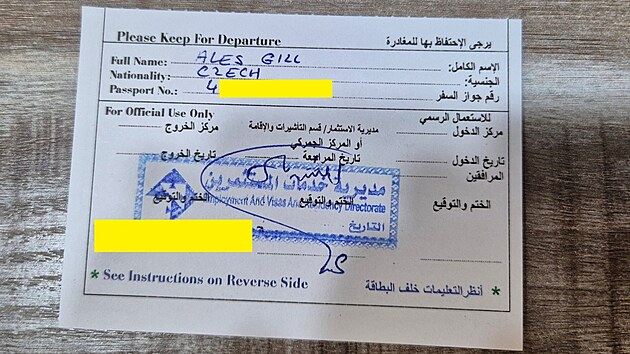 Please Keep For Departure يرجى الإحتفاظ بها للمغادرة
Full Name: ALES GILL الإسم الكامل:
Nationality: CZECH الجنسية:
Passport No.: 4 رقم جواز السفر
For Official Use Only للاستعمال الرسمي
مركز الخروج مديرية الاستثمار/ قسم التأشيرات والإقامة مركز الدخول
أو المركز الجمركي
تاريخ الخروج تاريخ المرافعة تاريخ الدخول
المرافقين
مديرية خدمات المستثمرين
الختم والتوقيع الختم والتوقيع الختم والتوقيع
Employment And Visas And Residency Directorate
التاريخ
* See Instructions on Reverse Side أنظر التعليمات خلف البطاقة *